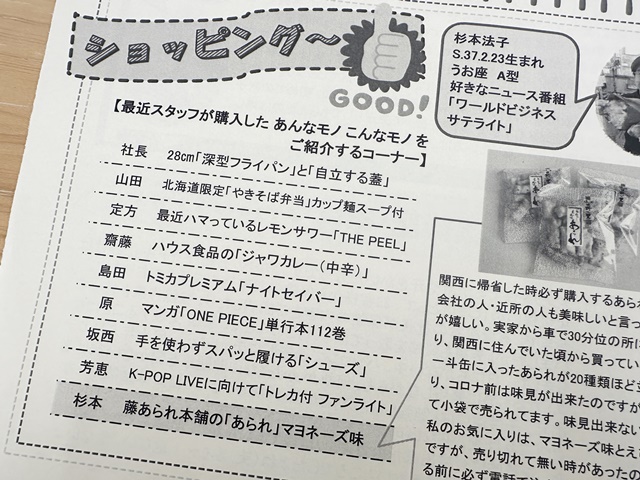 ショッピング〜
GOOD!
【最近スタッフが購入した あんなモノ こんなモノ を
ご紹介するコーナー】
社長 28cm「深型フライパン」と「自立する蓋」
山田 北海道限定「やきそば弁当」カップ麺スープ付
定方 最近ハマっているレモンサワー「THE PEEL」
齋藤 ハウス食品の「ジャワカレー(中辛)」
島田 トミカプレミアム「ナイトセイバー」
原 マンガ「ONE PIECE」単行本112巻
坂西 手を使わずスパッと履ける「シューズ」
芳恵 K-POP LIVEに向けて「トレカ付 ファンライト」
杉本 藤あられ本舗の「あられ」マヨネーズ味
杉本法子
S.37.2.23生まれ
うお座 A型
好きなニュース番組
「ワールドビジネス
サテライト」
関西に帰省した時必ず購入するあられ
会社の人・近所の人も美味しいと言っ
が嬉しい。実家から車で30分位の所に
り、関西に住んでいた頃から買ってい
一斗缶に入ったあられが20種類ほど
り、コロナ前は味見が出来たのですが
て小袋で売られてます。味見出来ない
私のお気に入りは、マヨネーズ味とえ
ですが、売り切れて無い時があったの
る前に必ず電話で